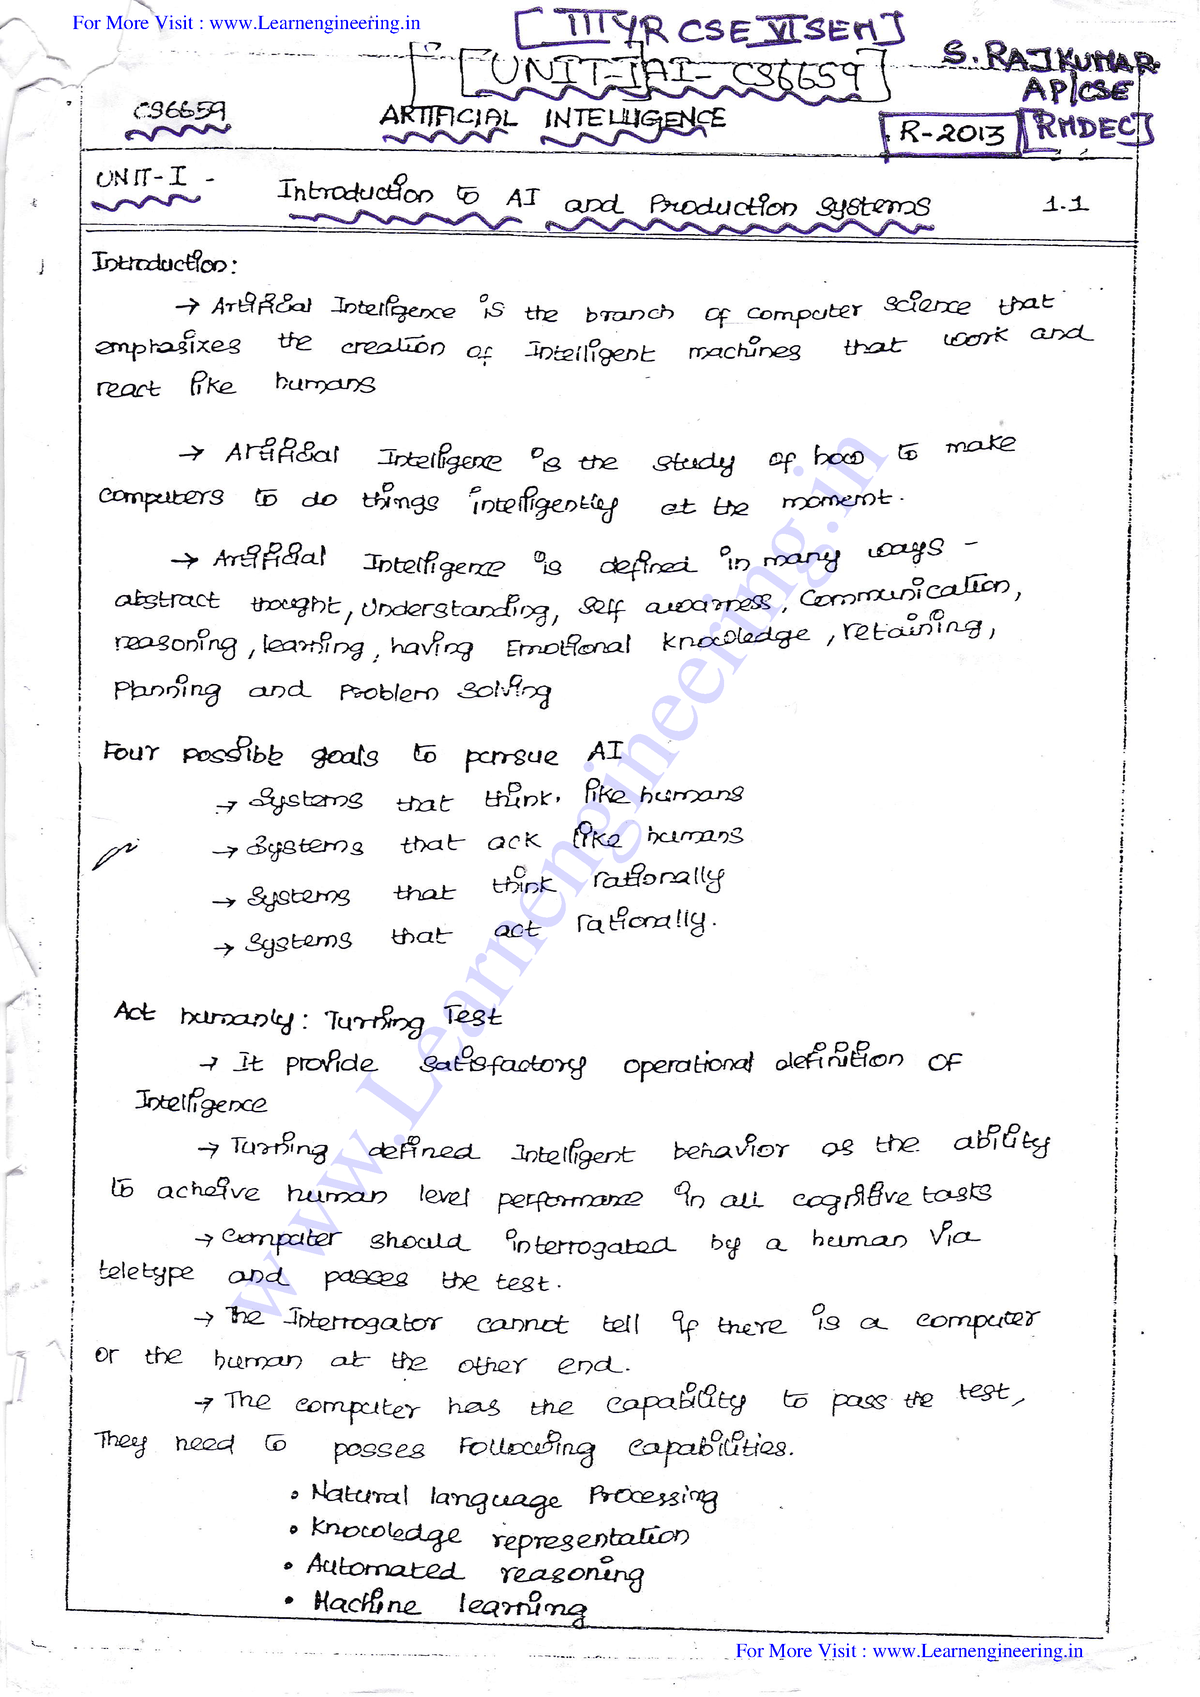 For More Visit : www.Learnengineering.in
[III YR CSE VI SEM]
[UNIT-I AI - CS6659]
S. RAJKUMAR
AP/CSE
CS6659
ARTIFICIAL INTELLIGENCE
R-2013 [RMDEC]
UNIT-I - Introduction to AI and Production Systems 1.1
Introduction:
→ Artificial Intelligence is the branch of computer science that
emphasizes the creation of Intelligent machines that work and
react like humans
→ Artificial Intelligence is the study of how to make
computers to do things intelligently at the moment.
→ Artificial Intelligence is defined in many ways -
abstract thought, Understanding, Self awarness, Communication,
reasoning, learning, having Emotional Knowledge, retaining,
Planning and Problem Solving
Four possible goals to pursue AI
→ Systems that think like humans
→ Systems that ack like humans
→ Systems that think rationally
→ Systems that act rationally.
Act humanly: Turning Test
→ It provide satisfactory operational definition of
Intelligence
→ Turning defined Intelligent behavior as the ability
to acheive human level performance in all cognitive tasks
→ Computer should interrogated by a human via
teletype and passes the test.
→ The Interrogator cannot tell if there is a computer
or the human at the other end.
→ The computer has the capability to pass the test,
They need to posses Following capabilities.
• Natural language Processing
• Knowledge representation
• Automated reasoning
• Machine learning
www.Learnengineering.in
For More Visit : www.Learnengineering.in